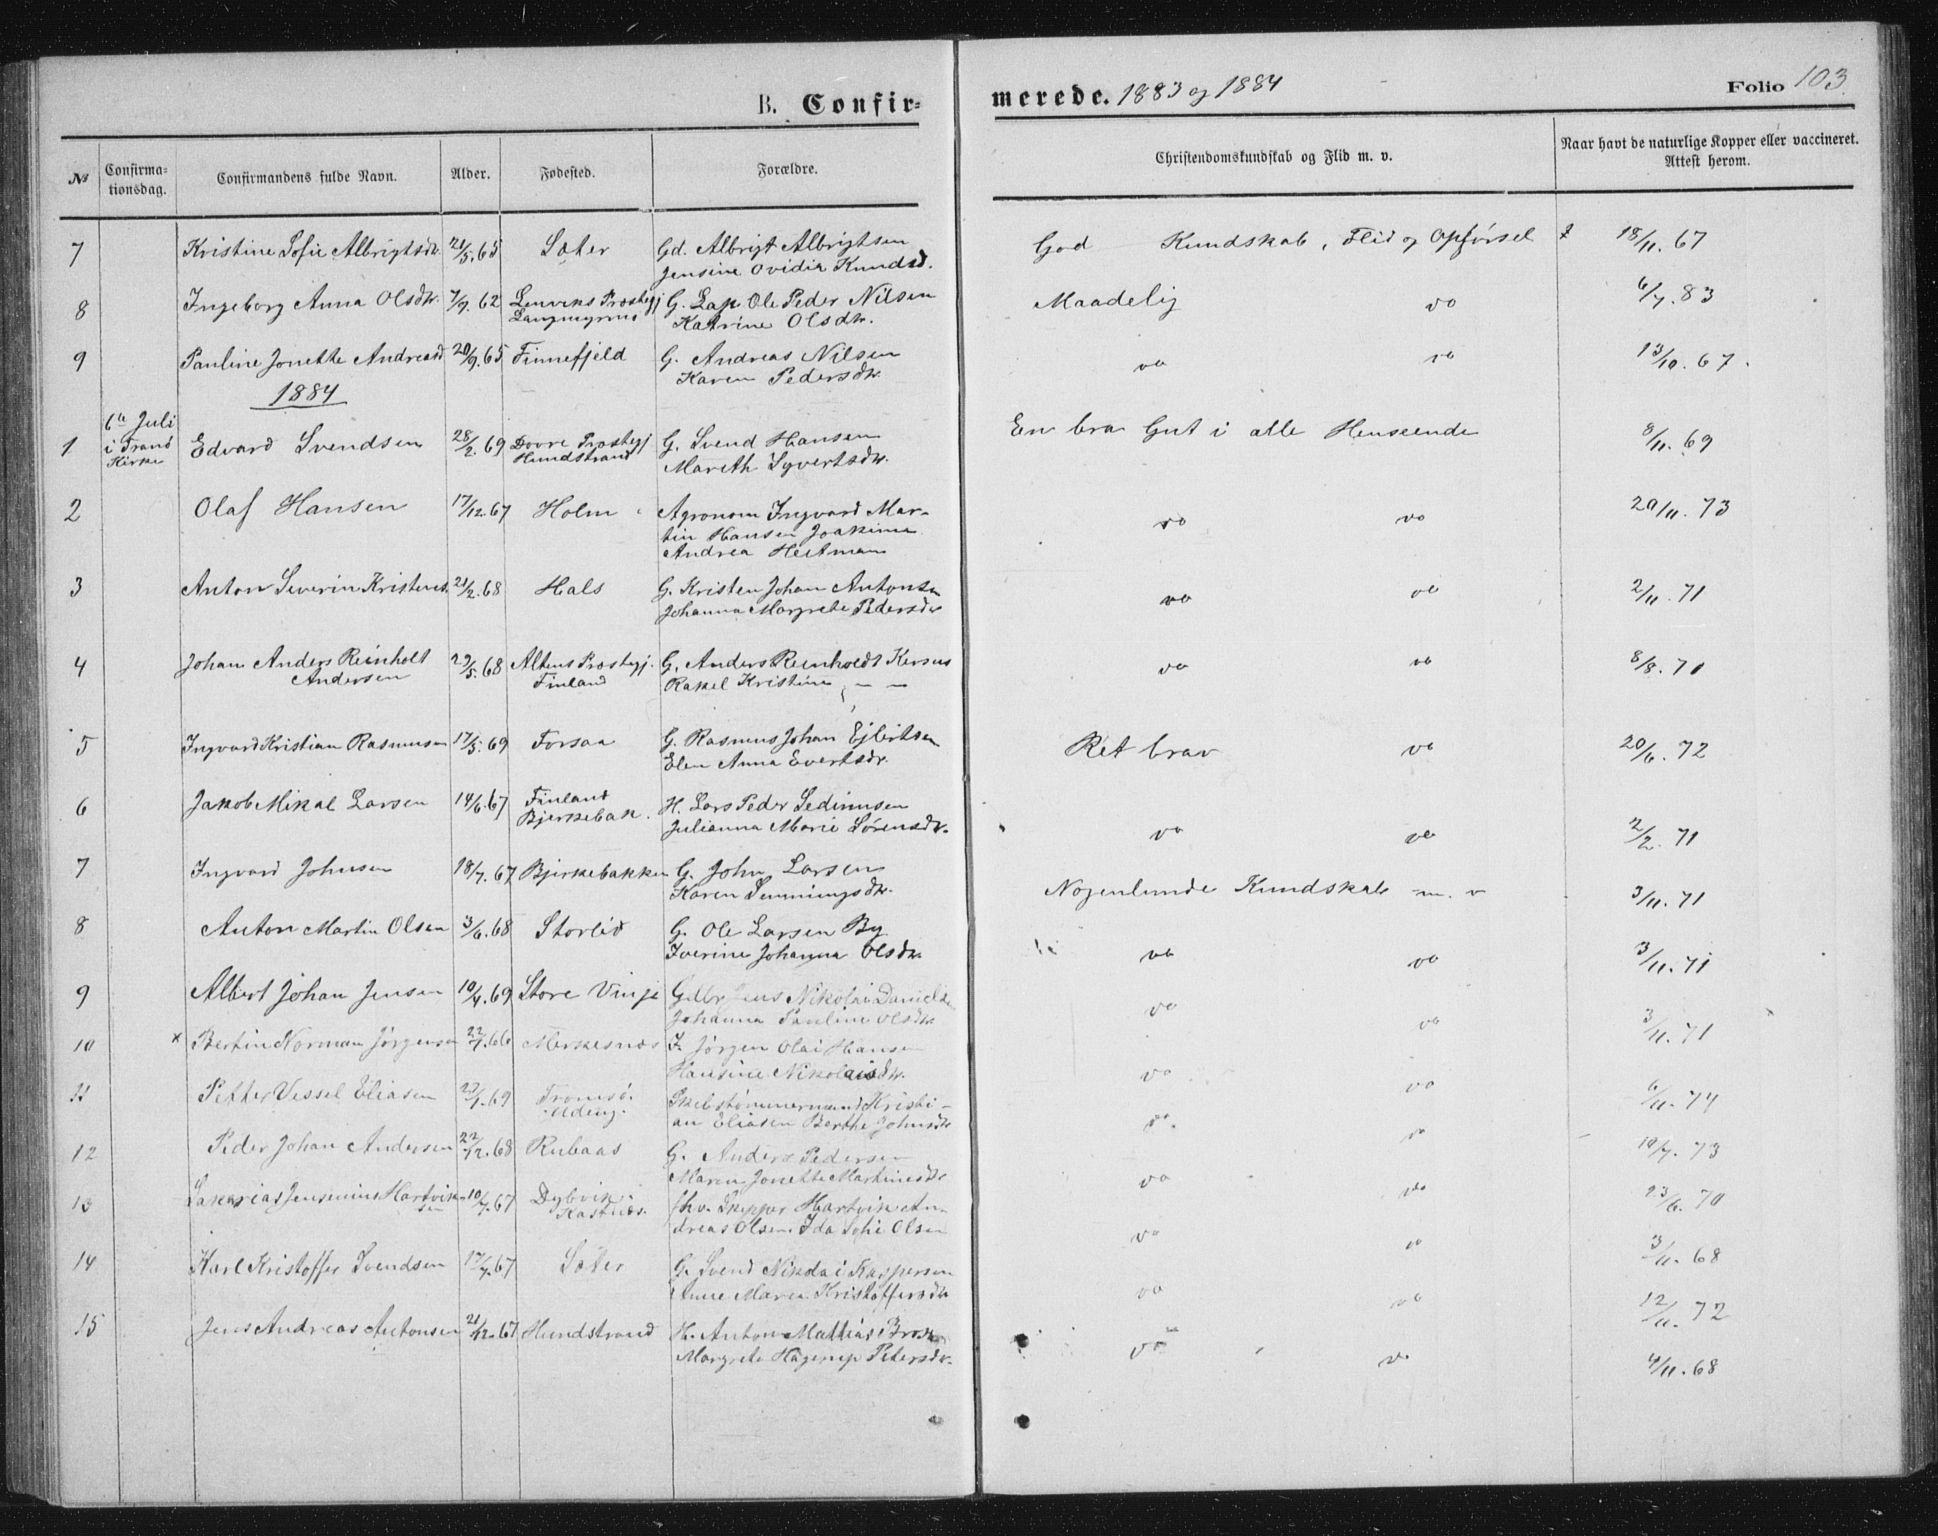 B. Confir= merede. 1883 og 1884 Folio 103.
№ Confirma-tionsdag. Confirmandens fulde Navn. Alder. Fødested. Forældre. Christendomskundskab og Flid m. v. Naar havt de naturlige Kopper eller vaccineret. Attest herom.
7 Kristine Sofie Albrigtsdtr. 21/5.65 Sæter Gd. Albrigt Albrigtsen God Kundskab, Flid og Opførsel 18/11.67
Jensine Ovidia Knudsd.
8 Ingeborg Anna Olsdtr. 7/9.62 Lenviks Præstegj G. Lap Ole Peder Nilsen Maadelig do 6/7.83
Katrine Olsdtr.
9 Pauline Jonette Andreasd 20/9.65 Finnefjeld G. Andreas Nilsen do do 13/10.67.
Karen Pedersdtr.
1884
6te Juli
i Tranø
Kirke
1 Edvard Svendsen 28/2.69 Dovre Præstegj G. Svend Hansen En bra Gut i alle Henseende 8/11.69
Hundstrand Mareth Syvertsdtr.
2 Olaf Hansen 17/12.67 Holm Agronom Ingvard Mar- do do 20/11.73
tin Hansen Joakime
Andrea Heitman
3 Anton Severin Kristens. 21/2.68 Hals G. Kristen Johan Antonsen do do 2/11.71
Johanna Margrete Pedersdtr
4 Johan Anders Reinholt 29/5.68 Altens Præstegj. G. Anders Reinholdt do do 8/8.71
Andersen Finland Rakel Kristine — —
5 Ingvard Kristian Rasmusen 17/5.69 Forsaa G. Rasmus Johan Ejlertsen Ret brav do 20/6.72
Elen Anna Evertsdr.
6 Jakob Mikal Larsen 14/6.67 Finland H. Lars Peder Sedinusen do do 2/2.71
Bjerkebak. Julianna Marie Sørensdtr.
7 Ingvard Johnsen 18/7.67 Bjerkebakken G. John Larsen Nogenlunde Kundskab m. v 3/11.71
Karen Semmingsdtr.
8 Anton Martin Olsen 3/6.68 Storlid G. Ole Larsen By do do 3/11.71
Iverine Johanna Olsdtr.
9 Albert Johan Jensen 10/4.69 Store Vinje Gdbr Jens Nikolai Danielsen do do 3/11.71
Johanna Pauline Olsdtr
10 × Bertin Norman Jørgensen 22/7.66 Merkesnæs I. Jørgen Olai Hansen do do 6/11.74
Hansine Nikolaisdtr.
11 Petter Vessel Eliasen 22/1.69 Tromsø Skibstømmermand Kristi- do do 10/7.73
an Eliasen Berthe Johnsdtr
12 Peder Johan Andersen 22/12.68 Rubaas G. Anders Pedersen do do 23/6.70
Maren Jonette Martinusdtr
13 Sakarias Jensenius Hartvik- 10/7.67 Dybvik i fhv. Skipper Hartvik An- do do 3/11.68
sen Kastnæs. dreas Olsen, Ida Sofie Olsen
14 Karl Kristoffer Svendsen 17/7.67 Sæter G. Svend Nikolai Kaspersen do do 12/11.72
Anne Maren Kristoffersdtr
15 Jens Andreas Antonsen 21/12.67 Hundstrand H. Anton Mathias Brox do do 4/11.68
Margrete Hagerup Petersdtr.